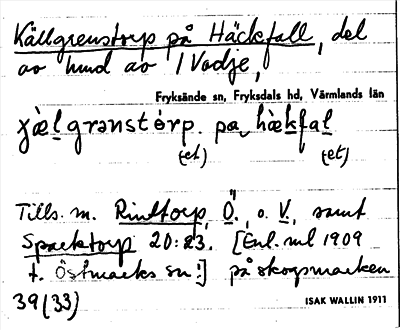 Källgrenstorp på Häckfall, del
av hmd av 1 Vadje,
Fryksände sn, Fryksdals hd, Värmlands län
pa hækfal
(et) (et)
Tills. m. Rinttorp, Ö., o. V., samt
Spaektorp 20:23. [Enl. ml 1909
t. Östmarks sn:] på skogsmarken
39 (33)
ISAK WALLIN 1911